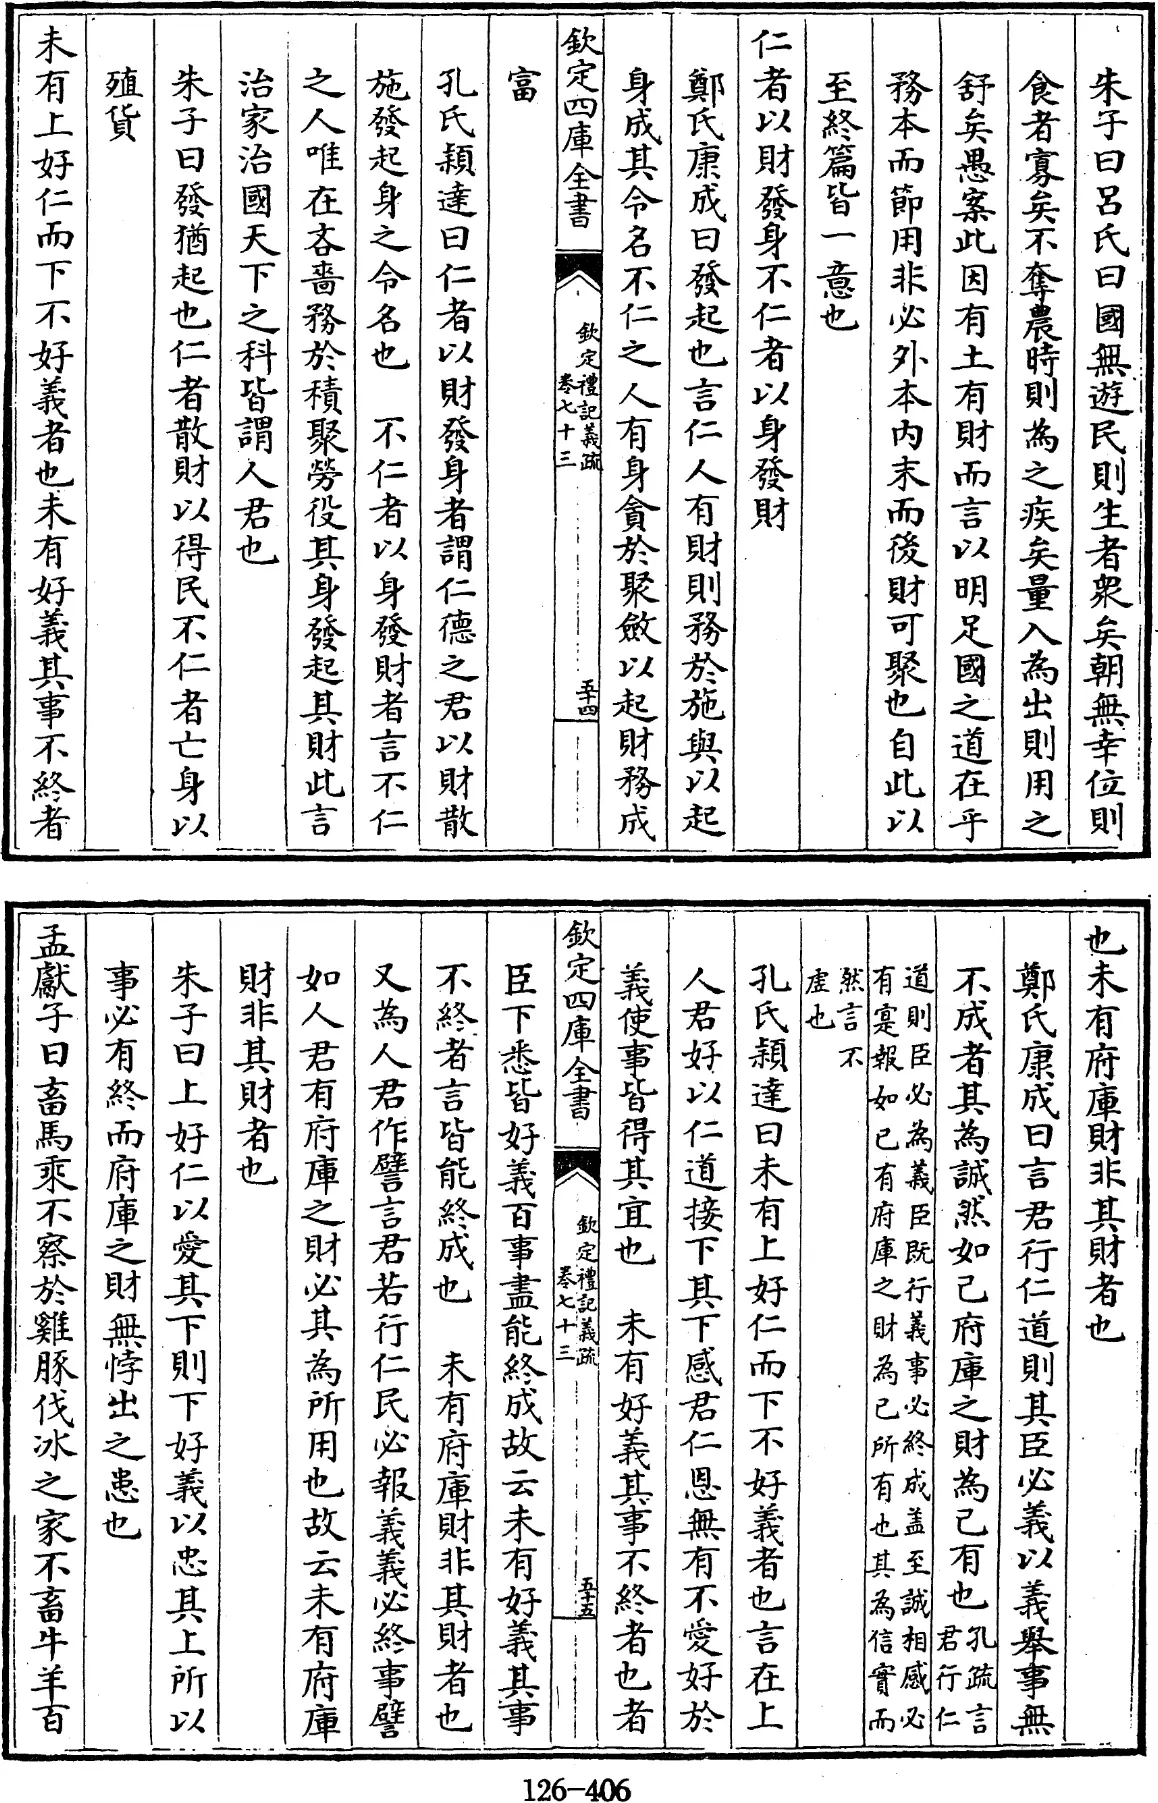 朱子曰呂氏曰國無遊民則生者衆矣朝無幸位則
食者寡矣不奪農時則為之疾矣量入為出則用之
舒矣愚案此因有土有財而言以明足國之道在乎
務本而節用非必外本内末而後財可聚也自此以
至終篇皆一意也
仁者以財發身不仁者以身發財
鄭氏康成曰發起也言仁人有財則務於施與以起
身成其令名不仁之人有身貪於聚斂以起財務成
欽定四庫全書
欽定禮記義疏
卷七十三
五十四
富
孔氏穎達曰仁者以財發身者謂仁德之君以財散
施發起身之令名也 不仁者以身發財者言不仁
之人唯在吝嗇務於積聚勞役其身發起其財此言
治家治國天下之科皆謂人君也
朱子曰發猶起也仁者散財以得民不仁者亡身以
殖貨
未有上好仁而下不好義者也未有好義其事不終者
也未有府庫財非其財者也
鄭氏康成曰言君行仁道則其臣必義以義舉事無
不成者其為誠然如己府庫之財為己有也
孔疏言
君行仁
道則臣必為義臣既行義事必終成盖至誠相感必
有寔報如己有府庫之財為己所有也其為信實而
然言不
虛也
孔氏穎達曰未有上好仁而下不好義者也言在上
人君好以仁道接下其下感君仁恩無有不愛好於
義使事皆得其宜也 未有好義其事不終者也者
欽定四庫全書
欽定禮記義疏
卷七十三
五十五
臣下悉皆好義百事盡能終成故云未有好義其事
不終者言皆能終成也 未有府庫財非其財者也
又為人君作譬言君若行仁民必報義義必終事譬
如人君有府庫之財必其為所用也故云未有府庫
財非其財者也
朱子曰上好仁以愛其下則下好義以忠其上所以
事必有終而府庫之財無悖出之患也
孟獻子曰畜馬乘不察於雞豚伐冰之家不畜牛羊百
126-406